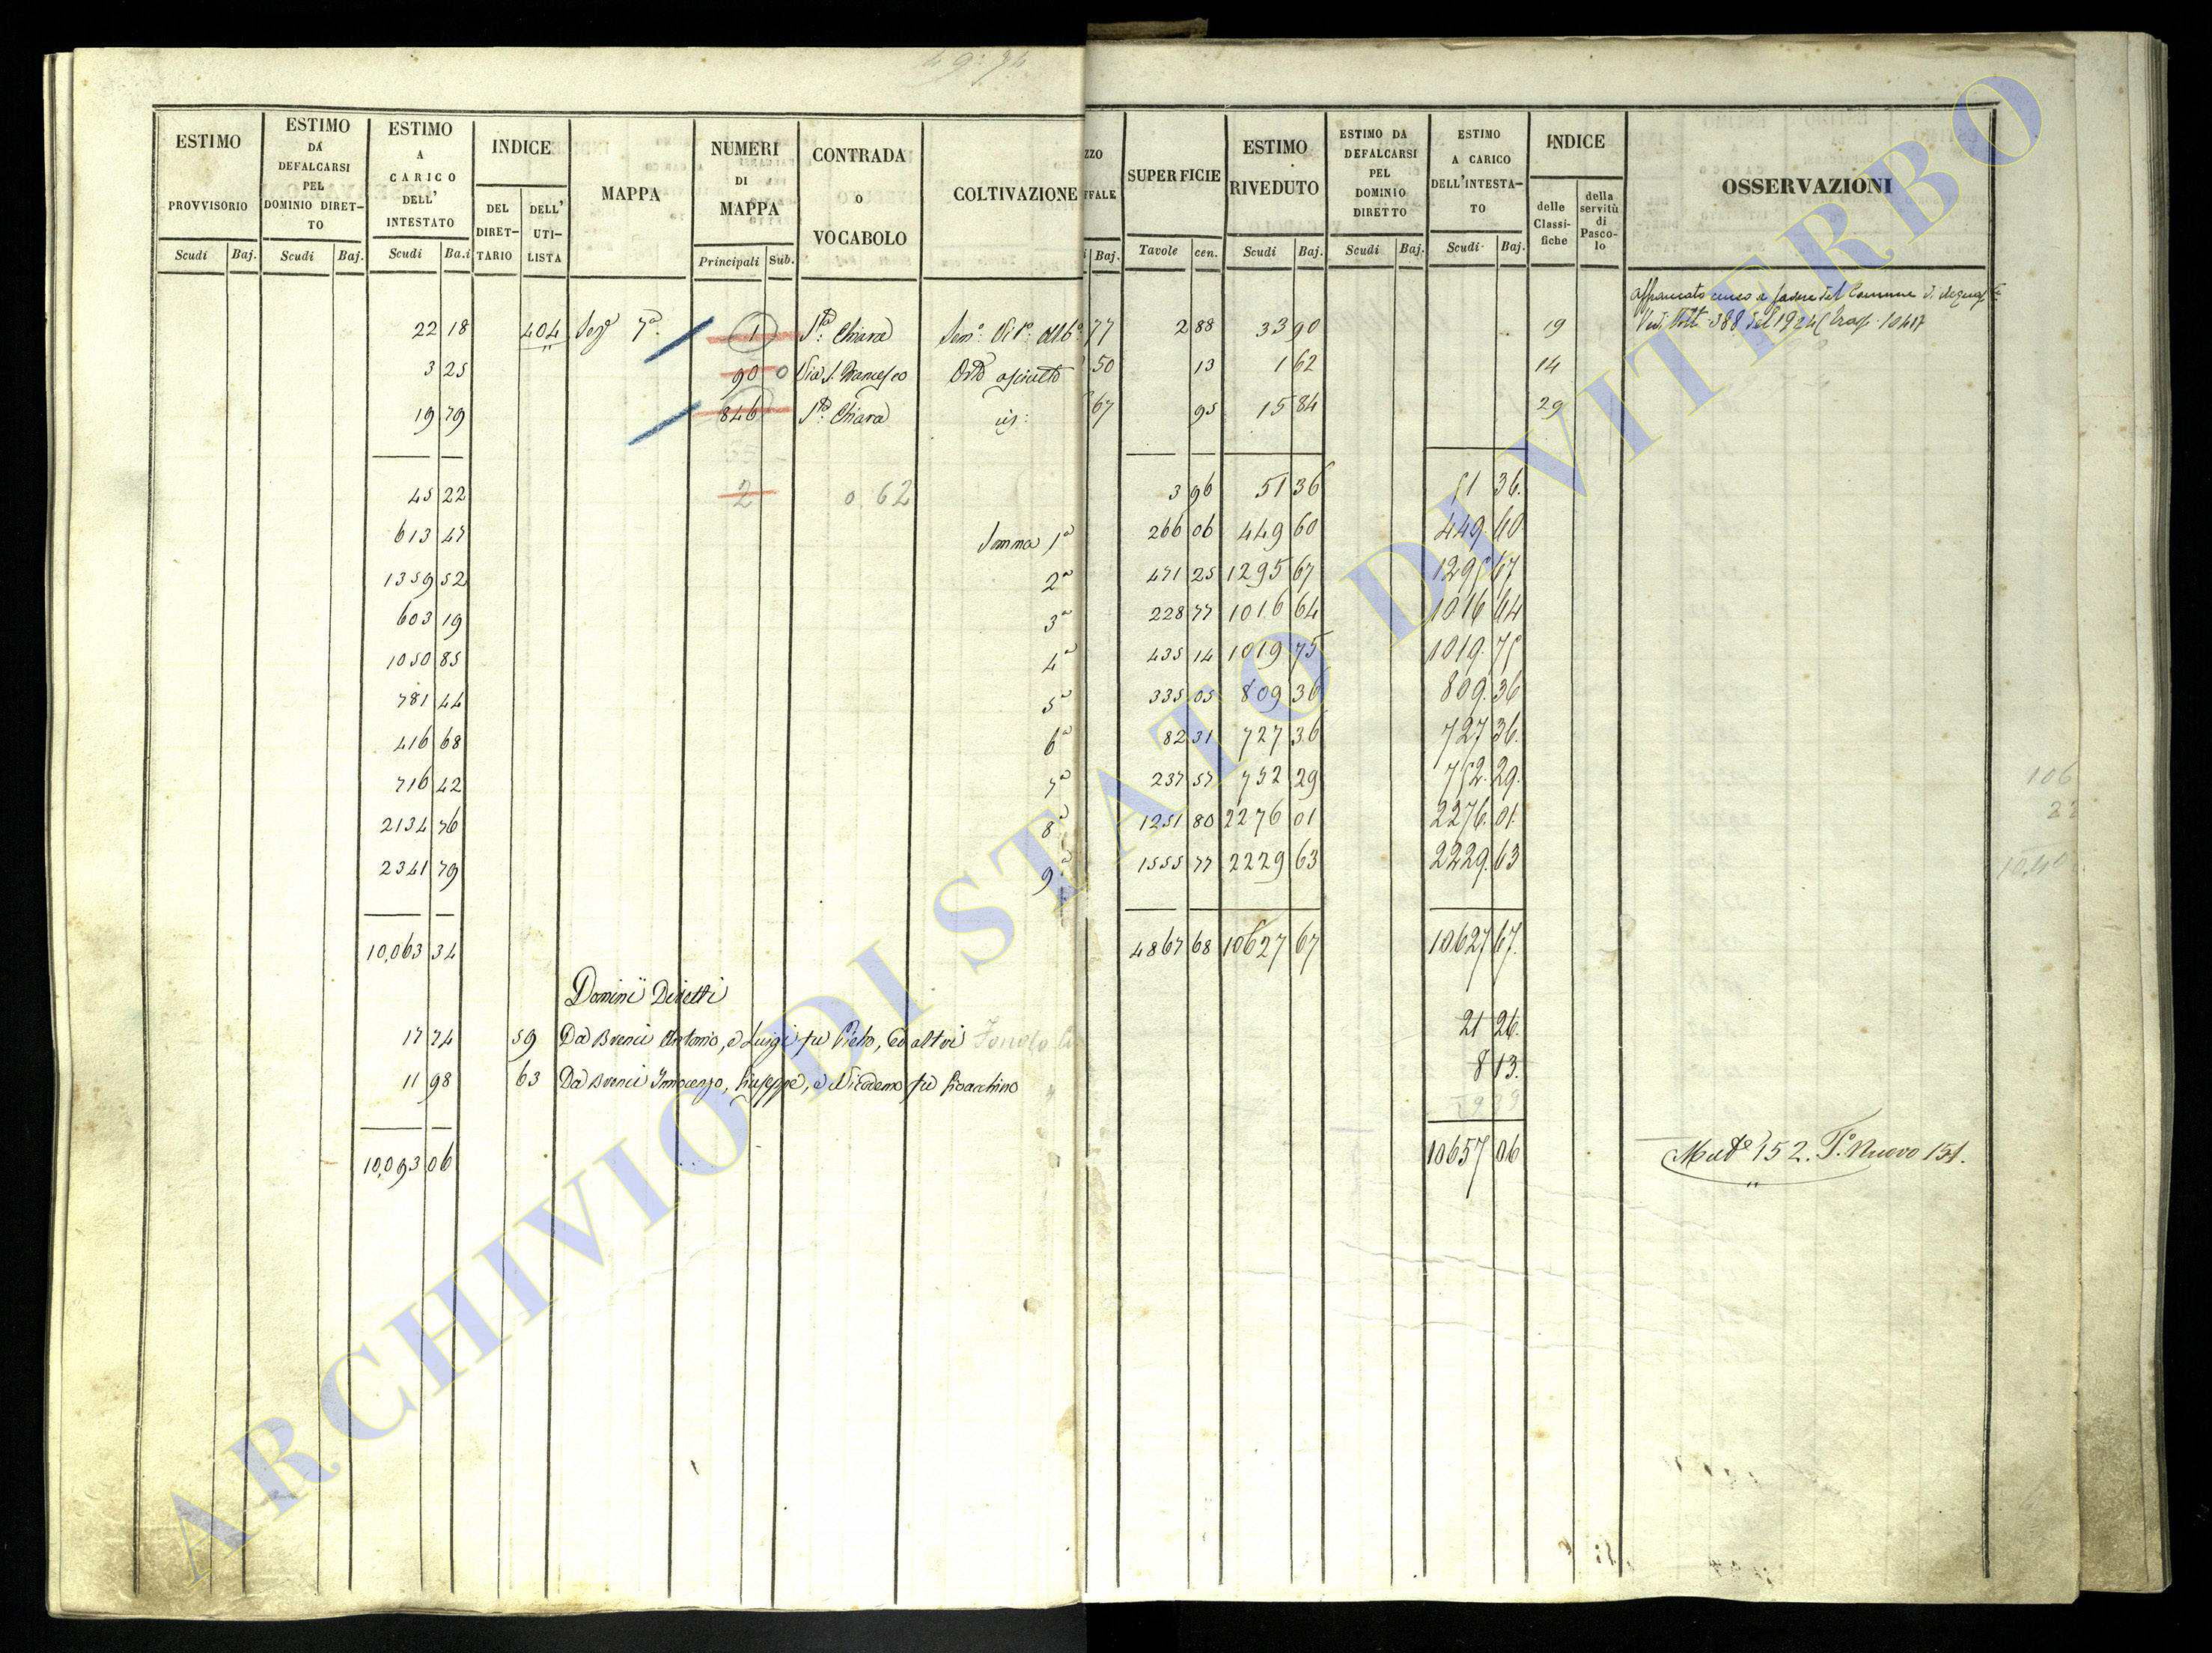 ESTIMO PROVVISORIO Scudi Baj.
ESTIMO DA DEFALCARSI PEL DOMINIO DIRET-TO Scudi Baj.
ESTIMO A CARICO DELL' INTESTATO Scudi Ba.i
INDICE DEL DIRET-TARIO DELL' UTI-LISTA
MAPPA
NUMERI DI MAPPA Principali Sub.
CONTRADA o VOCABOLO
COLTIVAZIONE
ZZO FFALE Baj.
SUPERFICIE Tavole cen.
ESTIMO RIVEDUTO Scudi Baj.
ESTIMO DA DEFALCARSI PEL DOMINIO DIRETTO Scudi Baj.
ESTIMO A CARICO DELL'INTESTA-TO Scudi Baj.
INDICE delle Classi-fiche della servitù di Pasco-lo
OSSERVAZIONI
22 18 404 Segº 7ª 1 Sta Chiara 77 2 88 33 90 19
Affrancato censo a favore del Comune di
388 del 1924
3 25 90 0 Via S. Francesco Orto asciutto 50 13 1 62 14
19 79 846 Sta Chiara 67 95 15 84 29
45 22 2 0.62 3 96 51 36 51 36.
613 47 Somma 1ª 266 06 449 60 449.60
1359 52 2ª 471 25 1295 67 1295 67
603 19 3ª 228 77 1016 64 1016 64
1050 85 4ª 435 14 1019 75 1019.75
781 44 5ª 335 05 809 36 809.36
416 68 6ª 82 31 727 36 727 36.
716 42 7ª 237 57 752 29 752.29.
2134 76 8ª 1251 80 2276 01 2276.01.
2341 79 9ª 1555 77 2229 63 2229.63
10,063 34 4867 68 10627 67 10627 67.
Dominii Diretti
17 74 59 Da Brenci Antonio, e Luigi fu Pietro, ed altri 21 26.
11 98 63 Da Brenci Innocenzo, Giuseppe, e Nicodemo fu Gioacchino 8 13.
10,093 06 10657 06 Mutº 152. Tº Nuovo 151.
ARCHIVIO DI STATO DI VITERBO